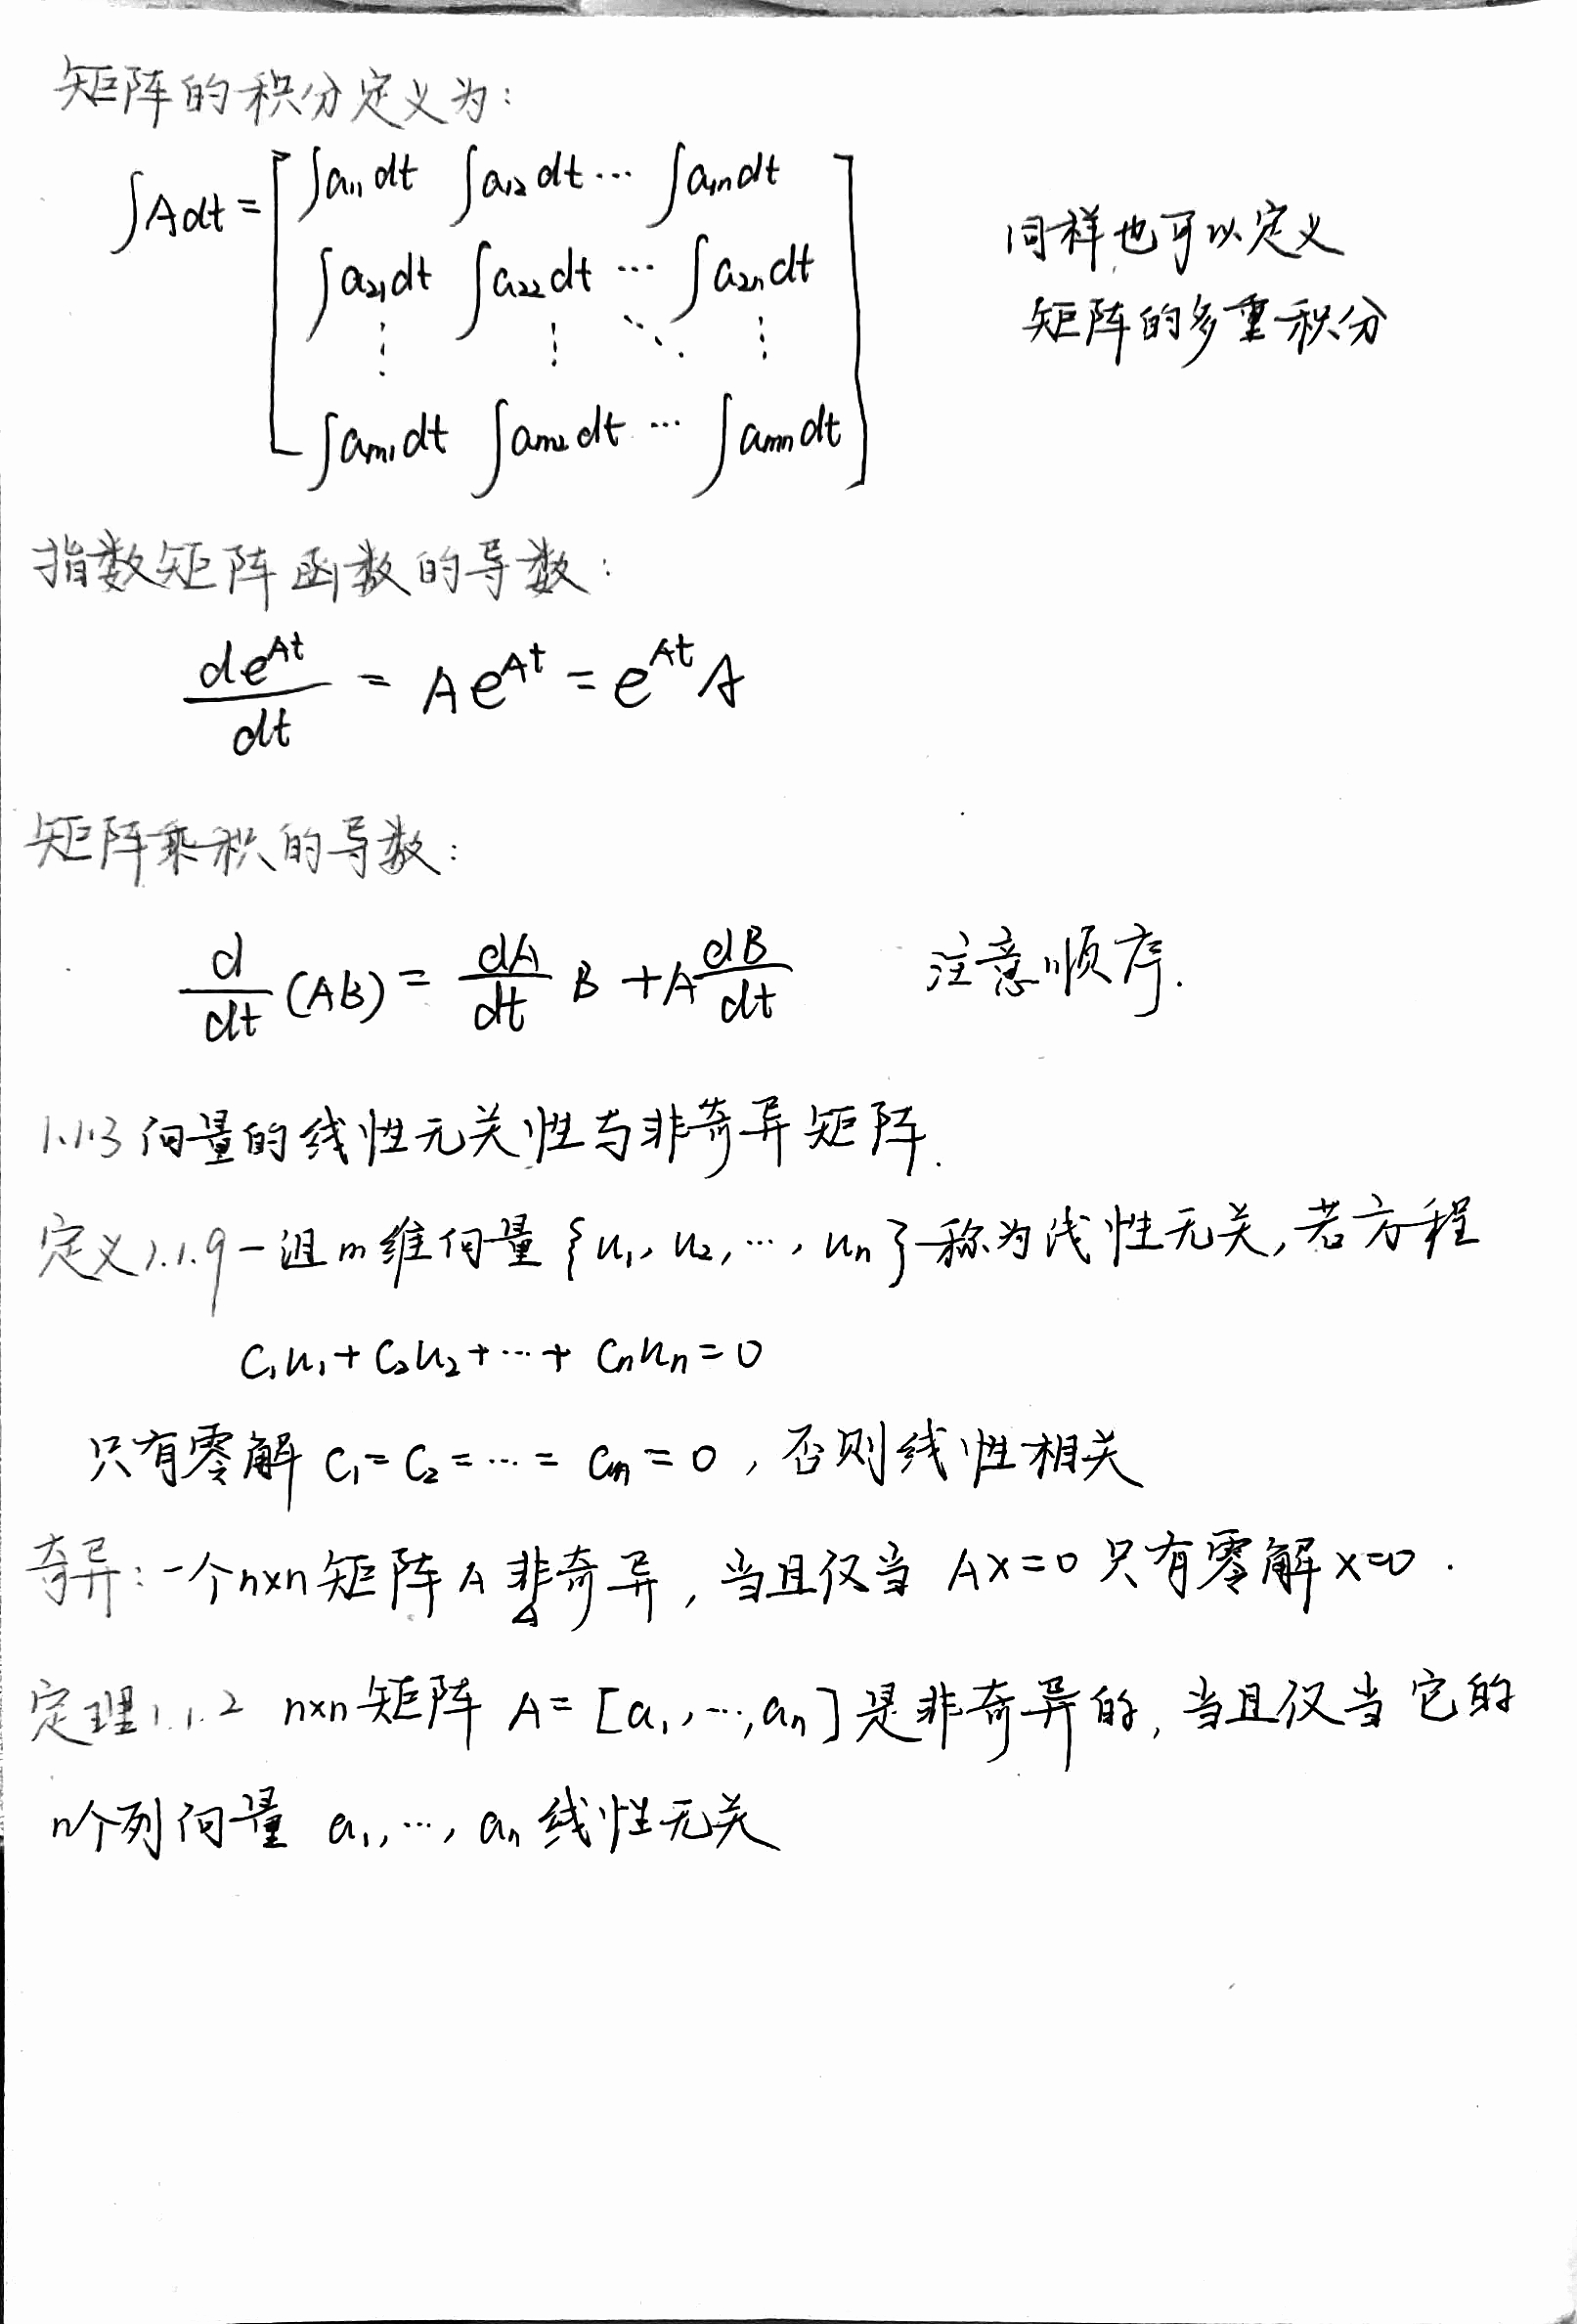 矩阵的积分定义为:
∫Adt = [ ∫a₁₁dt ∫a₁₂dt ⋯ ∫a₁ₙdt
∫a₂₁dt ∫a₂₂dt ⋯ ∫a₂ₙdt
⋮ ⋮ ⋱ ⋮
∫aₘ₁dt ∫aₘ₂dt ⋯ ∫aₘₙdt ]
同样也可以定义
矩阵的多重积分
指数矩阵函数的导数:
de^{At}/dt = Ae^{At} = e^{At}A
矩阵乘积的导数:
d/dt (AB) = dA/dt B + A dB/dt 注意顺序.
1.1.3 向量的线性无关性与非奇异矩阵.
定义1.1.9 一组m维向量{u₁, u₂, ⋯, uₙ}称为线性无关,若方程
c₁u₁ + c₂u₂ + ⋯ + cₙuₙ = 0
只有零解 c₁ = c₂ = ⋯ = cₙ = 0, 否则线性相关
奇异: 一个n×n矩阵A非奇异, 当且仅当 Ax=0 只有零解x=0.
定理1.1.2 n×n矩阵 A = [a₁, ⋯, aₙ]是非奇异的, 当且仅当它的
n个列向量 a₁, ⋯, aₙ 线性无关